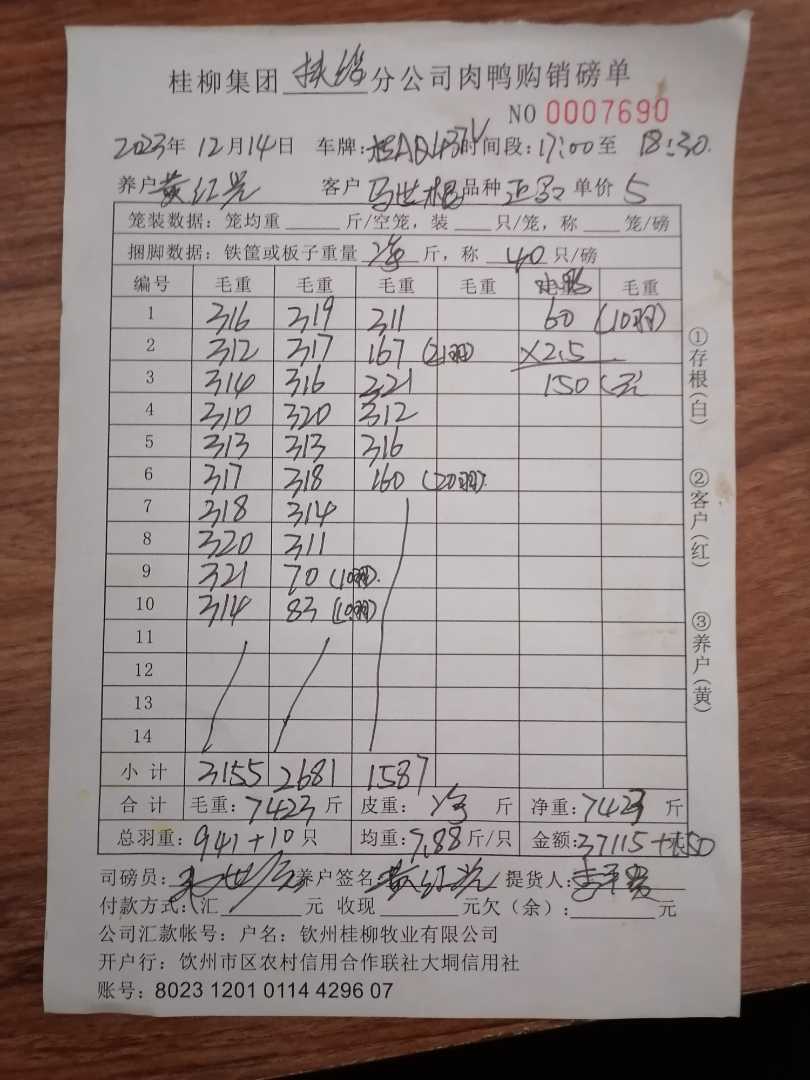 桂柳集团 扶绥 分公司肉鸭购销磅单
NO 0007690
2023年 12月14日 车牌: 时间段:17:00 至 18:30.
养户 黄红光 客户 马世 品种 单价 5
笼装数据: 笼均重 斤/空笼, 装 只/笼, 称 笼/磅
捆脚数据: 铁筐或板子重量 净 斤, 称 40 只/磅
编号 毛重 毛重 毛重 毛重 毛重
1 316 319 311 60 (10羽)
2 312 317 167 (21羽) ×2.5
3 314 316 321 150(元
4 310 320 312
5 313 313 316
6 317 318 160 (20羽)
7 318 314
8 320 311
9 321 70 (10羽).
10 314 83 (10羽)
11
12
13
14
小计 3155 2681 1587
合计 毛重: 7423 斤 皮重: 净 斤 净重: 7423 斤
总羽重: 941+10 只 均重: 7.88 斤/只 金额: 37115+150
司磅员: 养户签名 黄红光 提货人:
付款方式:(汇 元 收现 元欠(余): 元
公司汇款帐号: 户名: 钦州桂柳牧业有限公司
开户行: 饮州市区农村信用合作联社大垌信用社
账号: 8023 1201 0114 4296 07
①存根(白)
②客户(红)
③养户(黄)